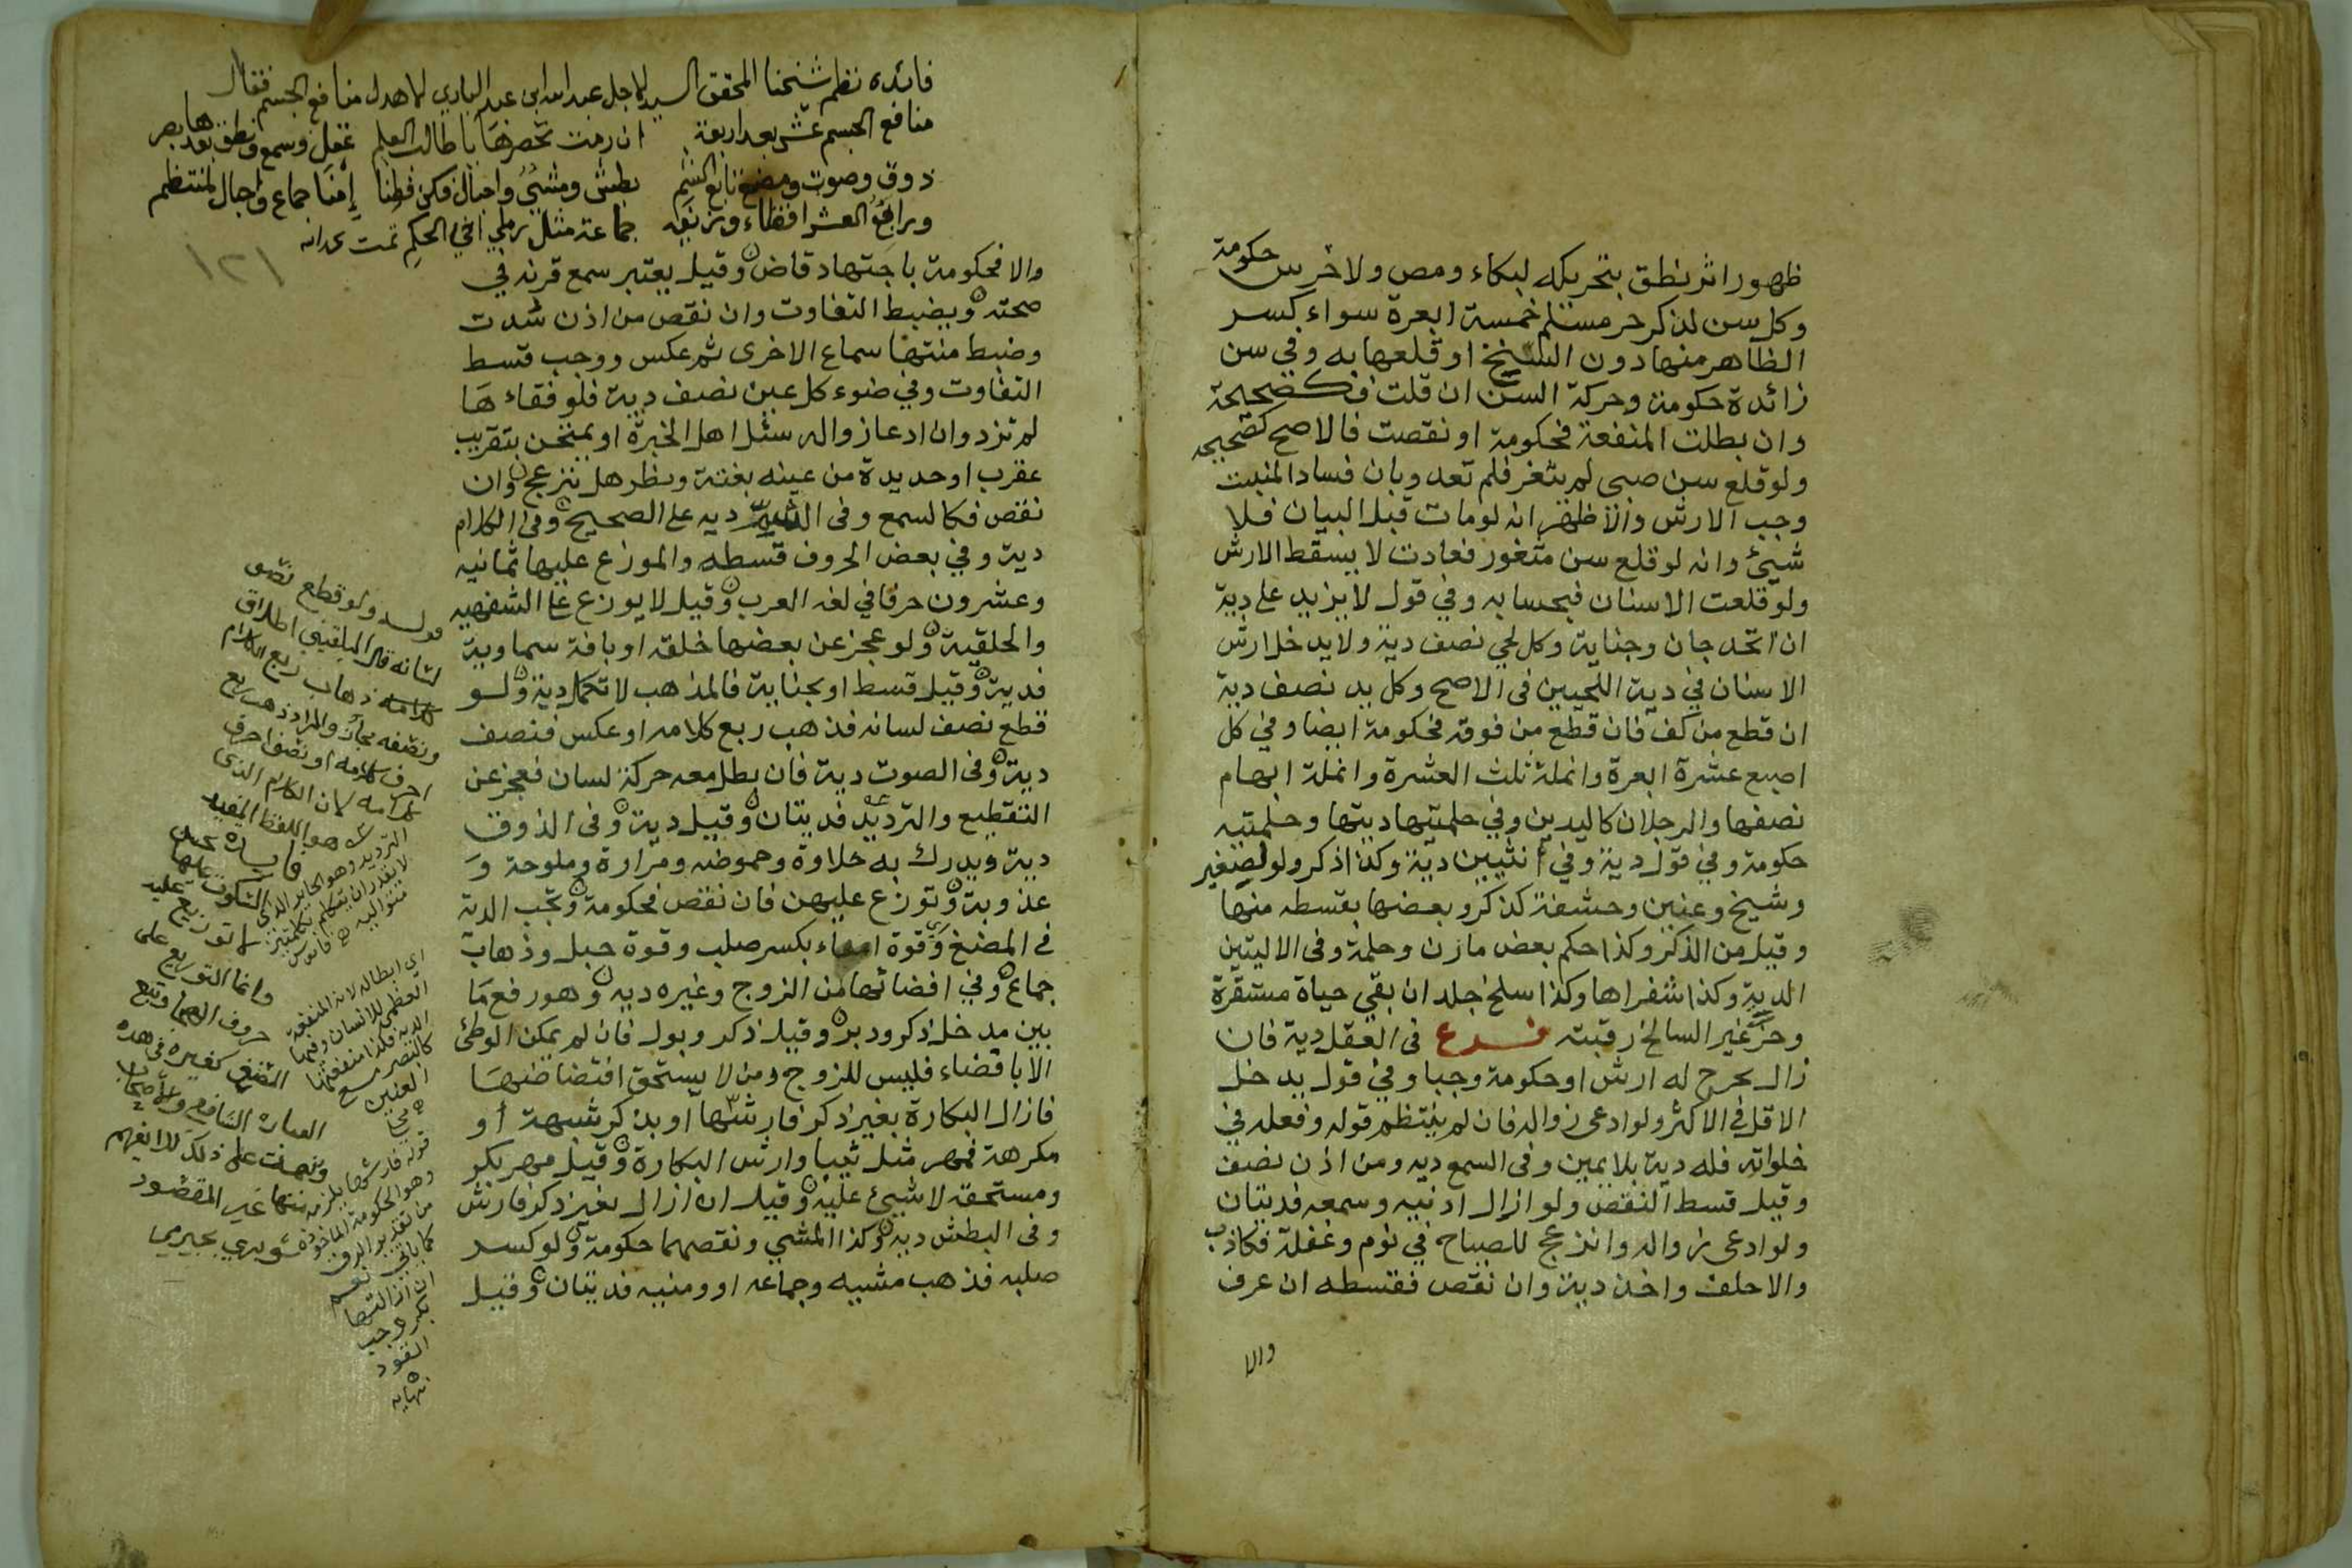 ظهور اثر نطق بتحريكه لبكاء ومص ولاخرس حكومة
وكل سن لذكر حر مسلم خمسة ابعرة سواء كسر
الظاهر منها دون السنخ او قلعها به وفي سن
زائدة حكومة وحركة السن ان قلت فكصحيحة
وان بطلت المنفعة فحكومة او نقصت فالاصح كصحيحه
ولو قلع سن صبي لم يثغر فلم تعد وبان فساد المنبت
وجب الارش والاظهر انه لو مات قبل البيان فلا
شيئ وانه لو قلع سن مثغور فعادت لا يسقط الارش
ولو قلعت الاسنان فبحسابه وفي قول لا يزيد على دية
ان اتحد جان وجناية وكل لحي نصف دية ولا يدخل ارش
الاسنان في دية اللحيين فى الاصح وكل يد نصف دية
ان قطع من كف فان قطع من فوقه فحكومة ايضا وفي كل
اصبع عشرة ابعرة وانملة ثلث العشرة وانملة ابهام
نصفها والرجلان كاليدين وفي حلمتيها ديتها وحلمتيه
حكومة وفي قول دية وفي انثيين دية وكذا ذكر ولو لصغير
وشيخ وعنين وحشفة كذكر وبعضها بقسطه منها
وقيل من الذكر وكذا حكم بعض مارن وحلمة وفى الاليتين
الدية وكذا شفراها وكذا سلخ جلد ان بقي حياة مستقرة
وحز غير السالخ رقبته فرع فى العقل دية فان
زال بجرح له ارش او حكومة وجبا وفي قول يدخل
الاقل في الاكثر ولو ادعى زواله فان لم ينتظم قوله وفعله في
خلواته فله دية بلا يمين وفى السمع ديه ومن اذن نصف
وقيل قسط النقص ولو ازال اذنيه وسمعه فديتان
ولو ادعى زواله وانزعج للصياح في نوم وغفلة فكاذب
والا حلف واخذ دية وان نقص فقسطه ان عرف
والا
فائده نظم شيخنا المحقق السيد الاجل عبد الله ابن عبد الباري الاهدل منافع الجسم فقال
منافع الجسم عشر بعد اربعة ان رمت تحصرها يا طالب العلم عقل وسمع ونطق بعدها بصر
ذوق وصوت ومضغ تابع الشم بطش ومشي واحبال فكن فطنا إمنا جماع واحبال لمنتظم
ورابع العشر افضاء وزن به جماعة مثل رملي اخي الحكم تمت بحمد الله
١٢١
والا فحكومة باجتهاد قاض وقيل يعتبر سمع قرنه في
صحته ويضبط التفاوت وان نقص من اذن شدت
وضبط منتهى سماع الاخرى ثم عكس ووجب قسط
التفاوت وفي ضوء كل عين نصف دية فلو فقاءها
لم تزد وان ادعا زواله سئل اهل الخبرة او يمتحن بتقريب
عقرب او حديدة من عينه بغتة ونظر هل ينزعج وان
نقص فكالسمع وفى الشم ديه على الصحيح وفى الكلام
دية وفي بعض الحروف قسطه والموزع عليها ثمانيه
وعشرون حرفا في لغه العرب وقيل لا يوزع على الشفهيه
والحلقية ولو عجز عن بعضها خلقه او بافة سماوية
فدية وقيل قسط او بجناية فالمذهب لا تكمل دية ولو
قطع نصف لسانه فذهب ربع كلامه او عكس فنصف
دية وفى الصوت دية فان بطل معه حركة لسان فعجز عن
التقطيع والترديد فديتان وقيل دية وفى الذوق
دية ويدرك به حلاوة وحموضه ومرارة وملوحة و
عذوبة وتوزع عليهن فان نقص فحكومة وتجب الدية
فى المضغ وقوة امناء بكسر صلب وقوة حبل وذهاب
جماع وفي افضائها من الزوج وغيره ديه وهو رفع ما
بين مدخل ذكر ودبر وقيل ذكر وبول فان لم يمكن الوطئ
الا بافضاء فليس للزوج ومن لا يستحق افتضاضها
فازال البكارة بغير ذكر فارشها او بذكر شبهة أو
مكرهة فمهر مثل ثيبا وارش البكارة وقيل مهر بكر
ومستحقه لا شيئ عليه وقيل ان ازال بغير ذكر فارش
وفى البطش ديه وكذا المشي ونقصهما حكومة ولو كسر
صلبه فذهب مشيه وجماعه او ومنيه فديتان وقيل
قوله ولو قطع نصف
لسانه قال البلقيني اطلاق
كلامه ذهاب ربع الكلام
ونصفه مجاز والمراد ذهب ربع
احرف كلامه او نصف احرف
كلامه لان الكلام الذى
هو اللفظ المفيد
فايدة يحسن
السكوت عليها
لا توزيع عليه
وانما التوزيع على
حروف الهجا وتبع
المصنف كغيره فى هذه
العبارة الشافعي والاصحاب
ونبهت على ذلك لئلا يفهم
منها غير المقصود
شوبري بجيرمي
اى ابطاله لانه المنفعة
العظمى للانسان وفيها
الدية فكذا منفعتها
كالبصر مع
العينين
قوله فارشها يلزمه
وهو الحكومة الماخوذه
من تقدير الرق
كما ياتى نعم
ان ازالتها
بكر وجب
القود
نهايه